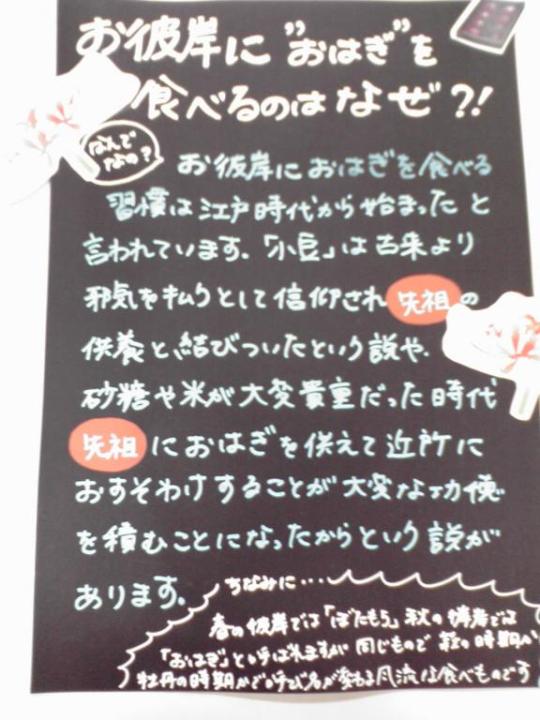 お彼岸に"おはぎ"を
食べるのはなぜ?!
なんで
なの?
お彼岸におはぎを食べる
習慣は江戸時代から始まったと
言われています。「小豆」は古来より
邪気を払うとして信仰され先祖の
供養と、結びついたという説や、
砂糖や米が大変貴重だった時代
先祖におはぎを供えて近所に
おすそわけすることが大変な功徳
を積むことになったからという説が
あります。
ちなみに・・・
春の彼岸では「ぼたもち」秋の彼岸では
「おはぎ」と呼ばれますが同じもので萩の時期か
牡丹の時期かで呼び名が変わる風流な食べものです